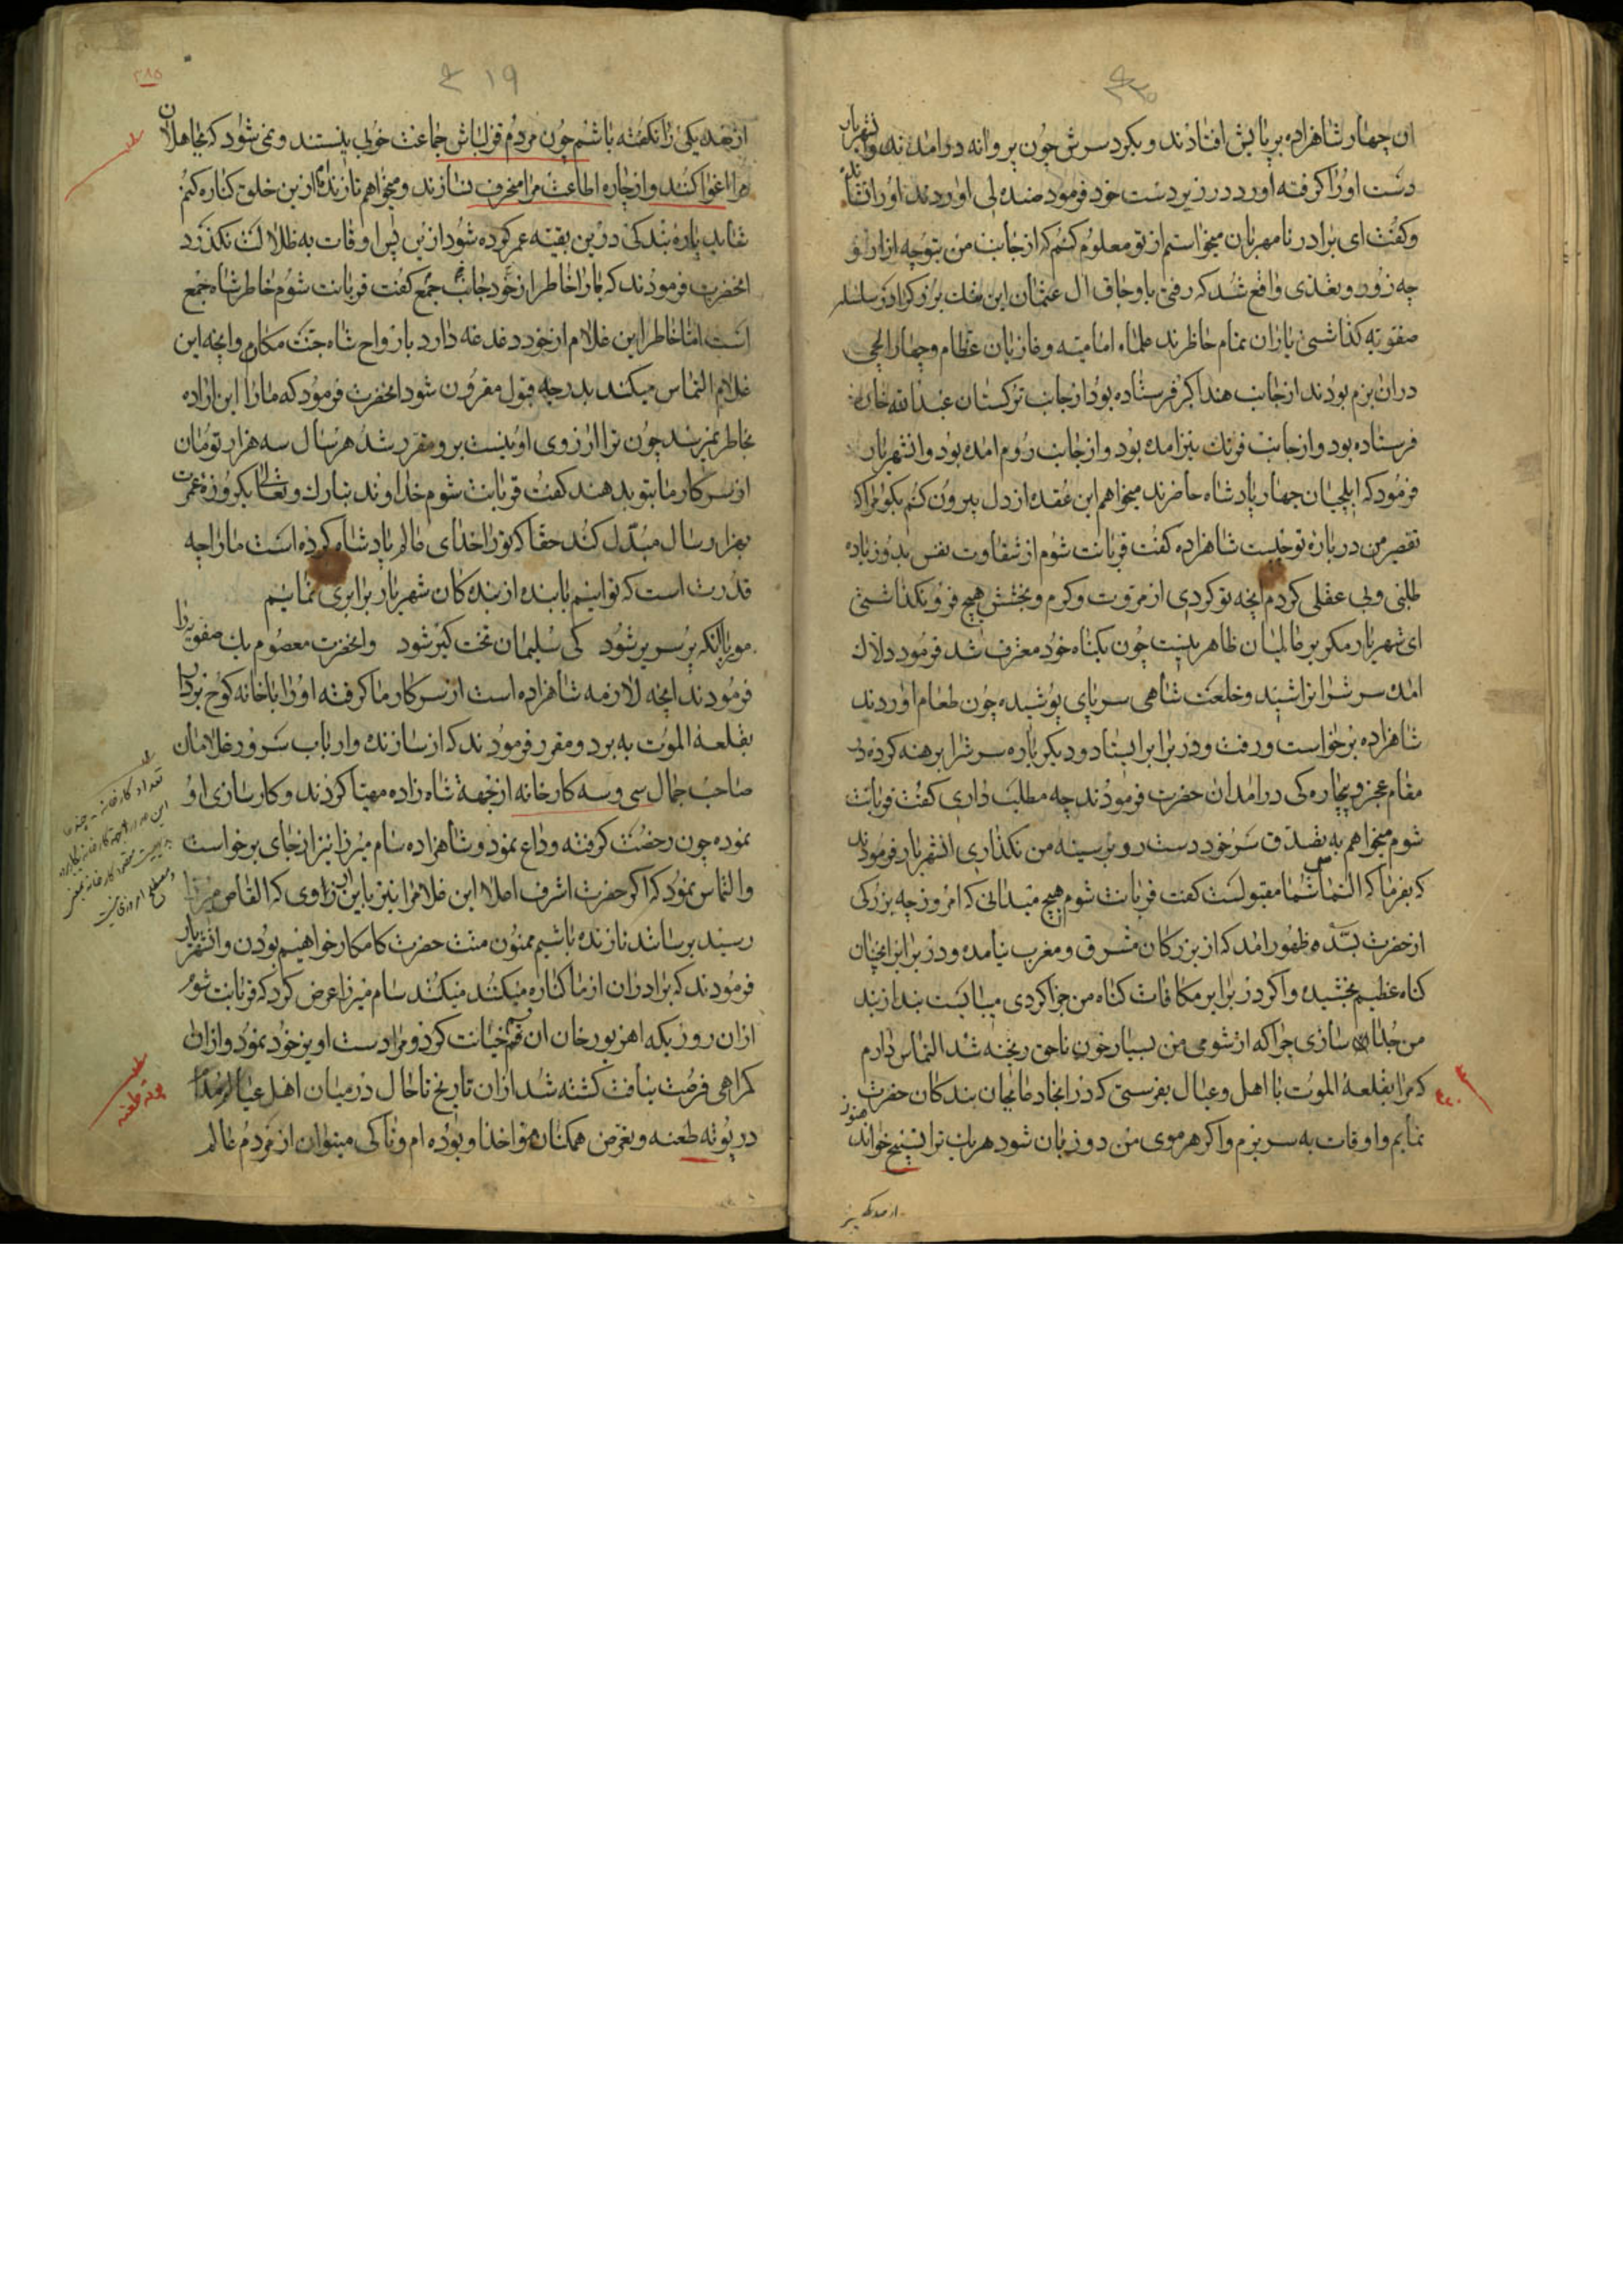 ان چهار شاهزاده بر پایش افتادند و بکرد سرش چون پروانه درامدند وانشهریار
دست اورا کرفته اورد در زیر دست خود فرمود صندلی اوردند اورا نشاند
و کفت ای برادر نامهربان میخواستم از تو معلوم کنم که از جانب من بتو چه ازار و
چه زور و تعدی واقع شد که رفتی باوجاق ال عثمان این
صفویه کذاشتی یاران تمام حاظرند علماء امامیه و غازیان عظام و چهار ایلچی
دران بزم بودند از جانب هند اکبر فرستاده بود از جانب ترکستان عبدالله خان
فرستاده بود و از جانب فرنک نیز امده بود و از جانب روم امده بود وانشهریار
فرمود که ایلچیان چهار پادشاه حاضرند میخواهم این عقده از دل بیرون کنم بکو برادر
تقصیر من در باره تو چیست شاهزاده کفت قربانت شوم از شقاوت نفس بد و زیاده
طلبی و بی عقلی کردم انچه تو کردی از مروت و کرم و بخشش هیچ فرو نکذاشتی
ای شهریار مکر بر عالمیان ظاهر نیست چون بکناه خود معترف شد فرمود دلاک
امد سرش را تراشید و خلعت شاهی سرپای پوشیده چون طعام اوردند
شاهزاده برخواست و رفت و در برابر ایستاد و دیکر باره سرش را برهنه کرده در
مقام عجز و بیچاره کی درامد ان حضرت فرمودند چه مطلب داری کفت قربانت
شوم میخواهم به تصدق سر خود دست رو بر سینه من نکذاری انشهریار فرمودند
که بفرما که التماس شما مقبولست کفت قربانت شوم هیچ میدانی که امروز چه بزرکی
از حضرت بنده ظهور امد که از بزرکان مشرق و مغرب نیامده و در برابر انچنان
کناه عظیم بخشیده و اکر در برابر مکافات کناه من جزا کردی میبایست بند از بند
من جدا سازی چراکه از شومی من بسیار خون ناحق ریخته شد التماس دارم
که مرا بقلعهٔ الموت با اهل و عیال بفرستی که در انجا دعا بجان بندکان حضرت
نمایم و اوقات به سر برم و اکر هر موی من دو زبان شود هریک ترا تسبیح خواند هنوز
از صد یکی را نکفته باشم چون مردم قزلباش جماعت خوبی نیستند و نمی شود که جاهلان
مرا اغوا کنند و از جاره اطاعت مرا منحرف سازند و میخواهم تا زنده ام ازین خلوق کناره کنم
شاید پاره بندکی درین بقیه عمر کرده شود ازین پس اوقات به ظلالت نکذرد
انحضرت فرمودند که مارا خاطر از خود جانب جمع کفت قربانت شوم خاطر شاه جمع
است اما خاطر این غلام از خود دغدغه دارد بارواح شاه جنت مکان وانچه این
غلام التماس میکند بدرجه قبول مقرون شود انحضرت فرمود که مارا این اراده
بخاطر نمیرسد چون ترا ارزوی اونیست برو مقرر شد هر سال سه هزار تومان
از سرکار ما بتو بدهند کفت قربانت شوم خداوند تبارک وتعالی یکروزه عمرت
بهزار سال مبدل کند حقا که ترا خدای عالم پادشاه کرده است مارا چه
قدرت است که توانیم با بنده از بنده کان شهریار برابری نمائیم
مور با انکه بر سریر شود کی سلیمان تخت کیر شود وانحضرت معصوم بیک صفوی را
فرمودند انچه لازمه شاهزاده است از سرکار ما کرفته اورا با خانه کوچ بردار
بقلعهٔ الموت به برد و مقرر فرمودند که از سازنده و ارباب سرور غلامان
صاحب جمال سی و سه کارخانه از جهة شاه زاده مهیا کردند و کارسازی او
نموده چون رخصت کرفته وداع نمود و شاهزاده سام میرزا نیز از جای برخواست
والتماس نمود که اکر حضرت اشرف اعلا این غلام را نیز باین زاوی که القاص میرزا
رسید برساند تا زنده باشیم ممنون منت حضرت کامکار خواهیم بودن وانشهریار
فرمودند که برادران از ما کناره میکنند میکنند سام میرزا عرض کرد که قربانت شوم
ازان روزیکه اهزیور خان ان قسم خیانت کرد و مرا دست اویز خود نمود و ازان
کمراهی فرصت نیافت کشته شد ازان تاریخ تا حال در میان اهل عیال
در بوته طعنه و تعرض همکنان بوده ام و تا کی میتوان از مردم عالم